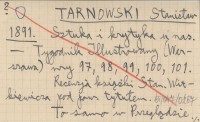 ? TARNOWSKI Stanisław
1891. Sztuka i krytyka u nas.
— Tygodnik Illustrowany (War-
szawa) nry 97, 98, 99, 100, 101.
Recenzja książki Stan. Wit-
kiewicza pod pow. tytułem.
To samo w Przeglądzie